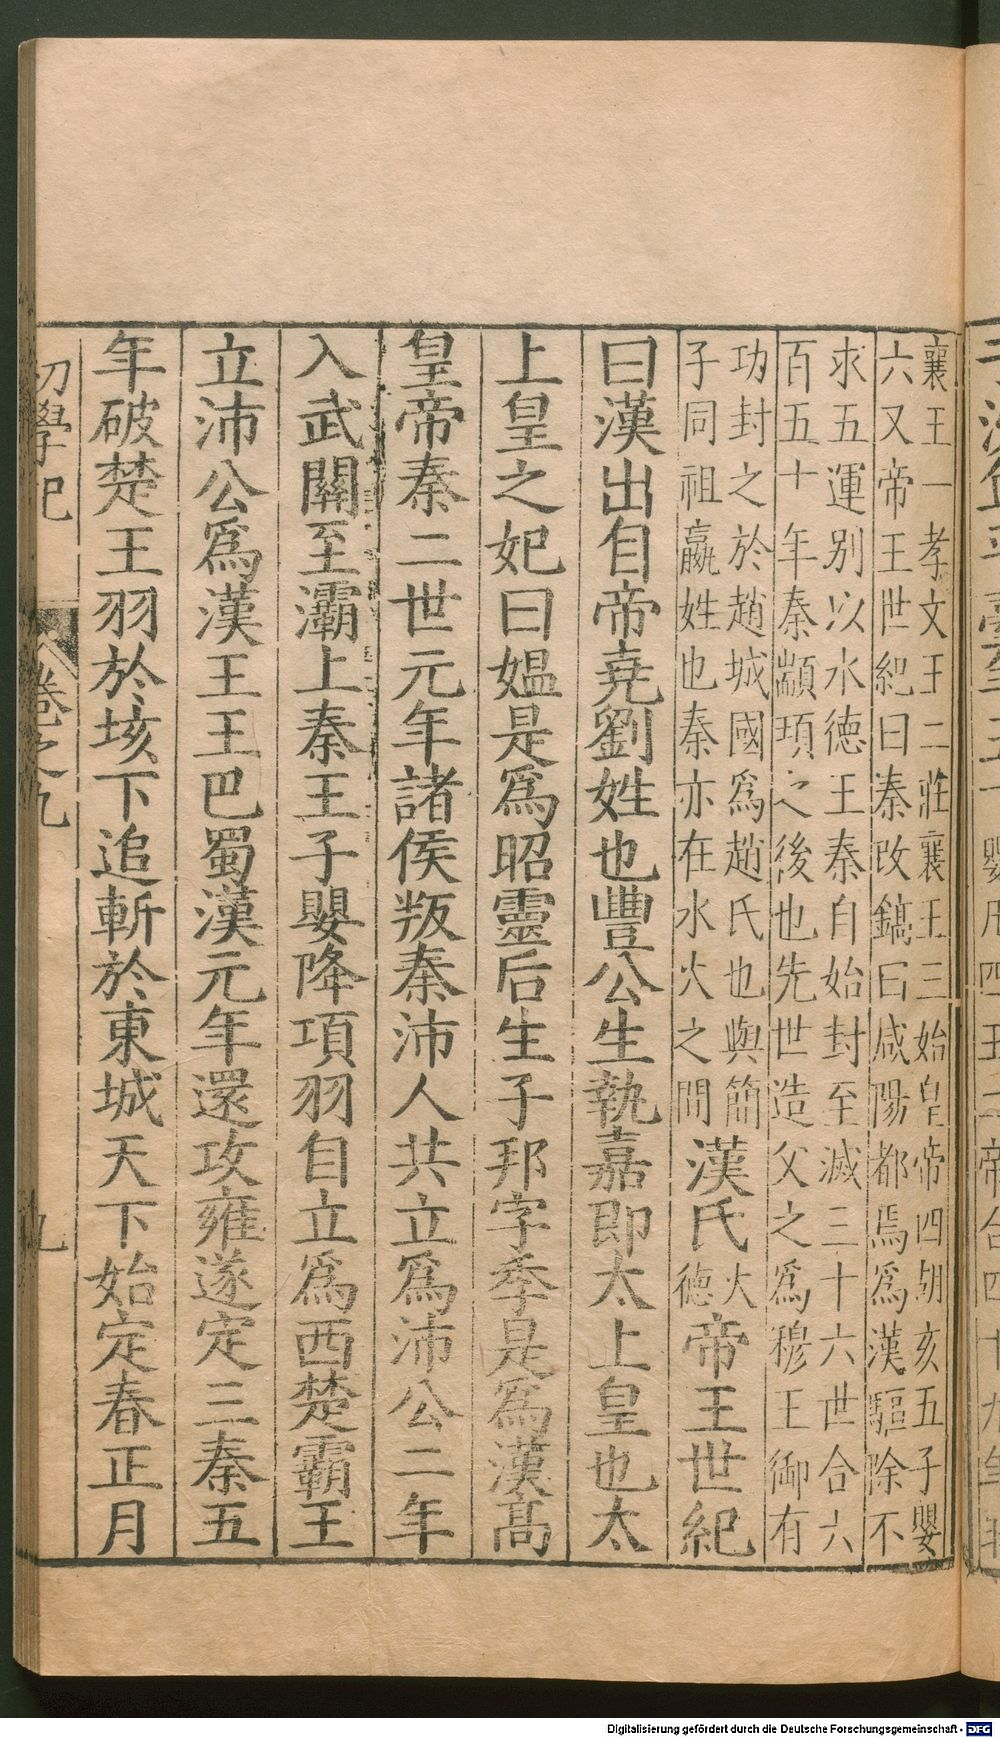 襄王一孝文王二莊襄王三始皇帝四胡亥五子嬰
六又帝王世紀曰秦改鎬曰咸陽都焉爲漢驅除不
求五運別以水德王秦自始封至滅三十六世合六
百五十年秦顓頊之後也先世造父之爲穆王御有
功封之於趙城國爲趙氏也與簡
子同祖嬴姓也秦亦在水火之間
漢氏
火
德
帝王世紀
曰漢出自帝堯劉姓也豐公生執嘉即太上皇也太
上皇之妃曰媼是爲昭靈后生子邦字季是爲漢高
皇帝秦二世元年諸侯叛秦沛人共立爲沛公二年
入武關至灞上秦王子嬰降項羽自立爲西楚霸王
立沛公爲漢王王巴蜀漢元年還攻雍遂定三秦五
年破楚王羽於垓下追斬於東城天下始定春正月
初學記 卷之九 九
Digitalisierung gefördert durch die Deutsche Forschungsgemeinschaft - DFG